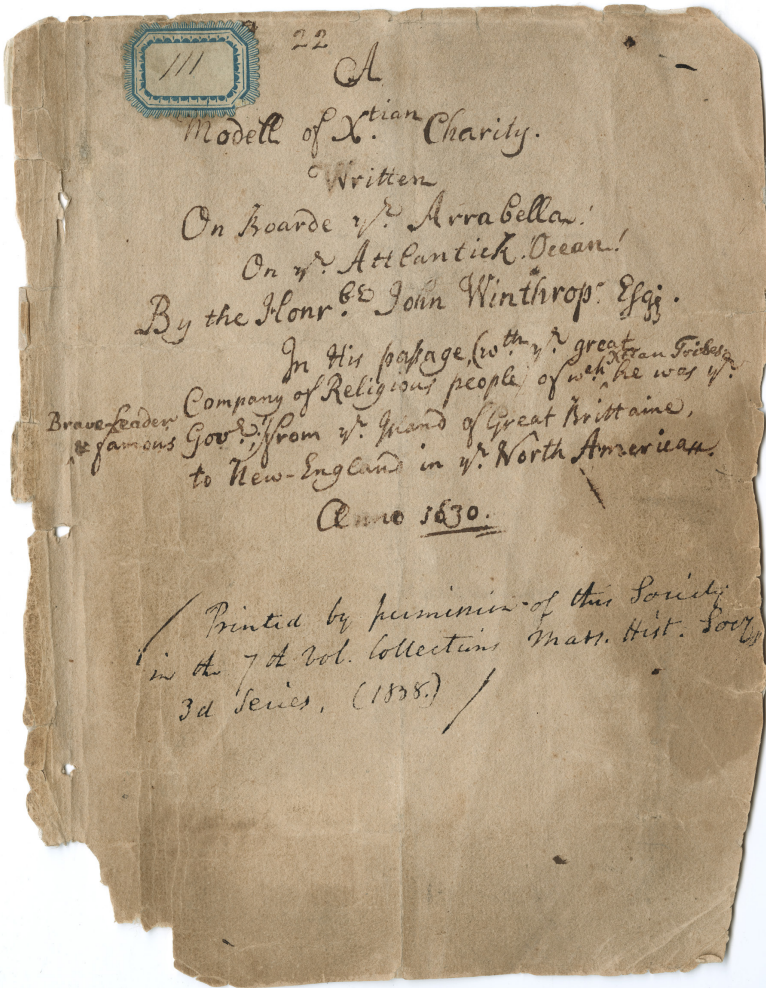 111
22
A
Modell of X.tian Charity.
Written
On Boarde ye. Arrabella!
On ye. Attlantick. Ocean!
By the Honrble. John Winthrop. Esqr.
In His passage, (wth ye. great
Xtian Tribes
Company of Religious people, of wch. he was ye.
Brave Leader
& famous Govr;) from ye. Island of Great Brittaine,
to New-England in ye. North America.
Anno 1630.
( Printed by permission of this Society
in the 7th Vol. Collections Mass. Hist. Socy,
3d Series, (1838.) /